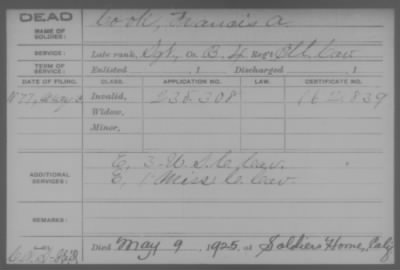 DEAD
NAME OF SOLDIER:
Cook, Francis A.
SERVICE:
Late rank, Sgt., Co. B. 4 Reg't Ill. Cav
TERM OF SERVICE:
Enlisted , 1 Discharged , 1
DATE OF FILING. CLASS. APPLICATION NO. LAW. CERTIFICATE NO.
1877, Invalid, 235.308 162.839
Widow,
Minor,
ADDITIONAL SERVICES:
E, 3 U. S. C. Cav.
E, 1 Miss C. Cav.
REMARKS:
Died May 9, 1925, at Soldiers Home, Calif